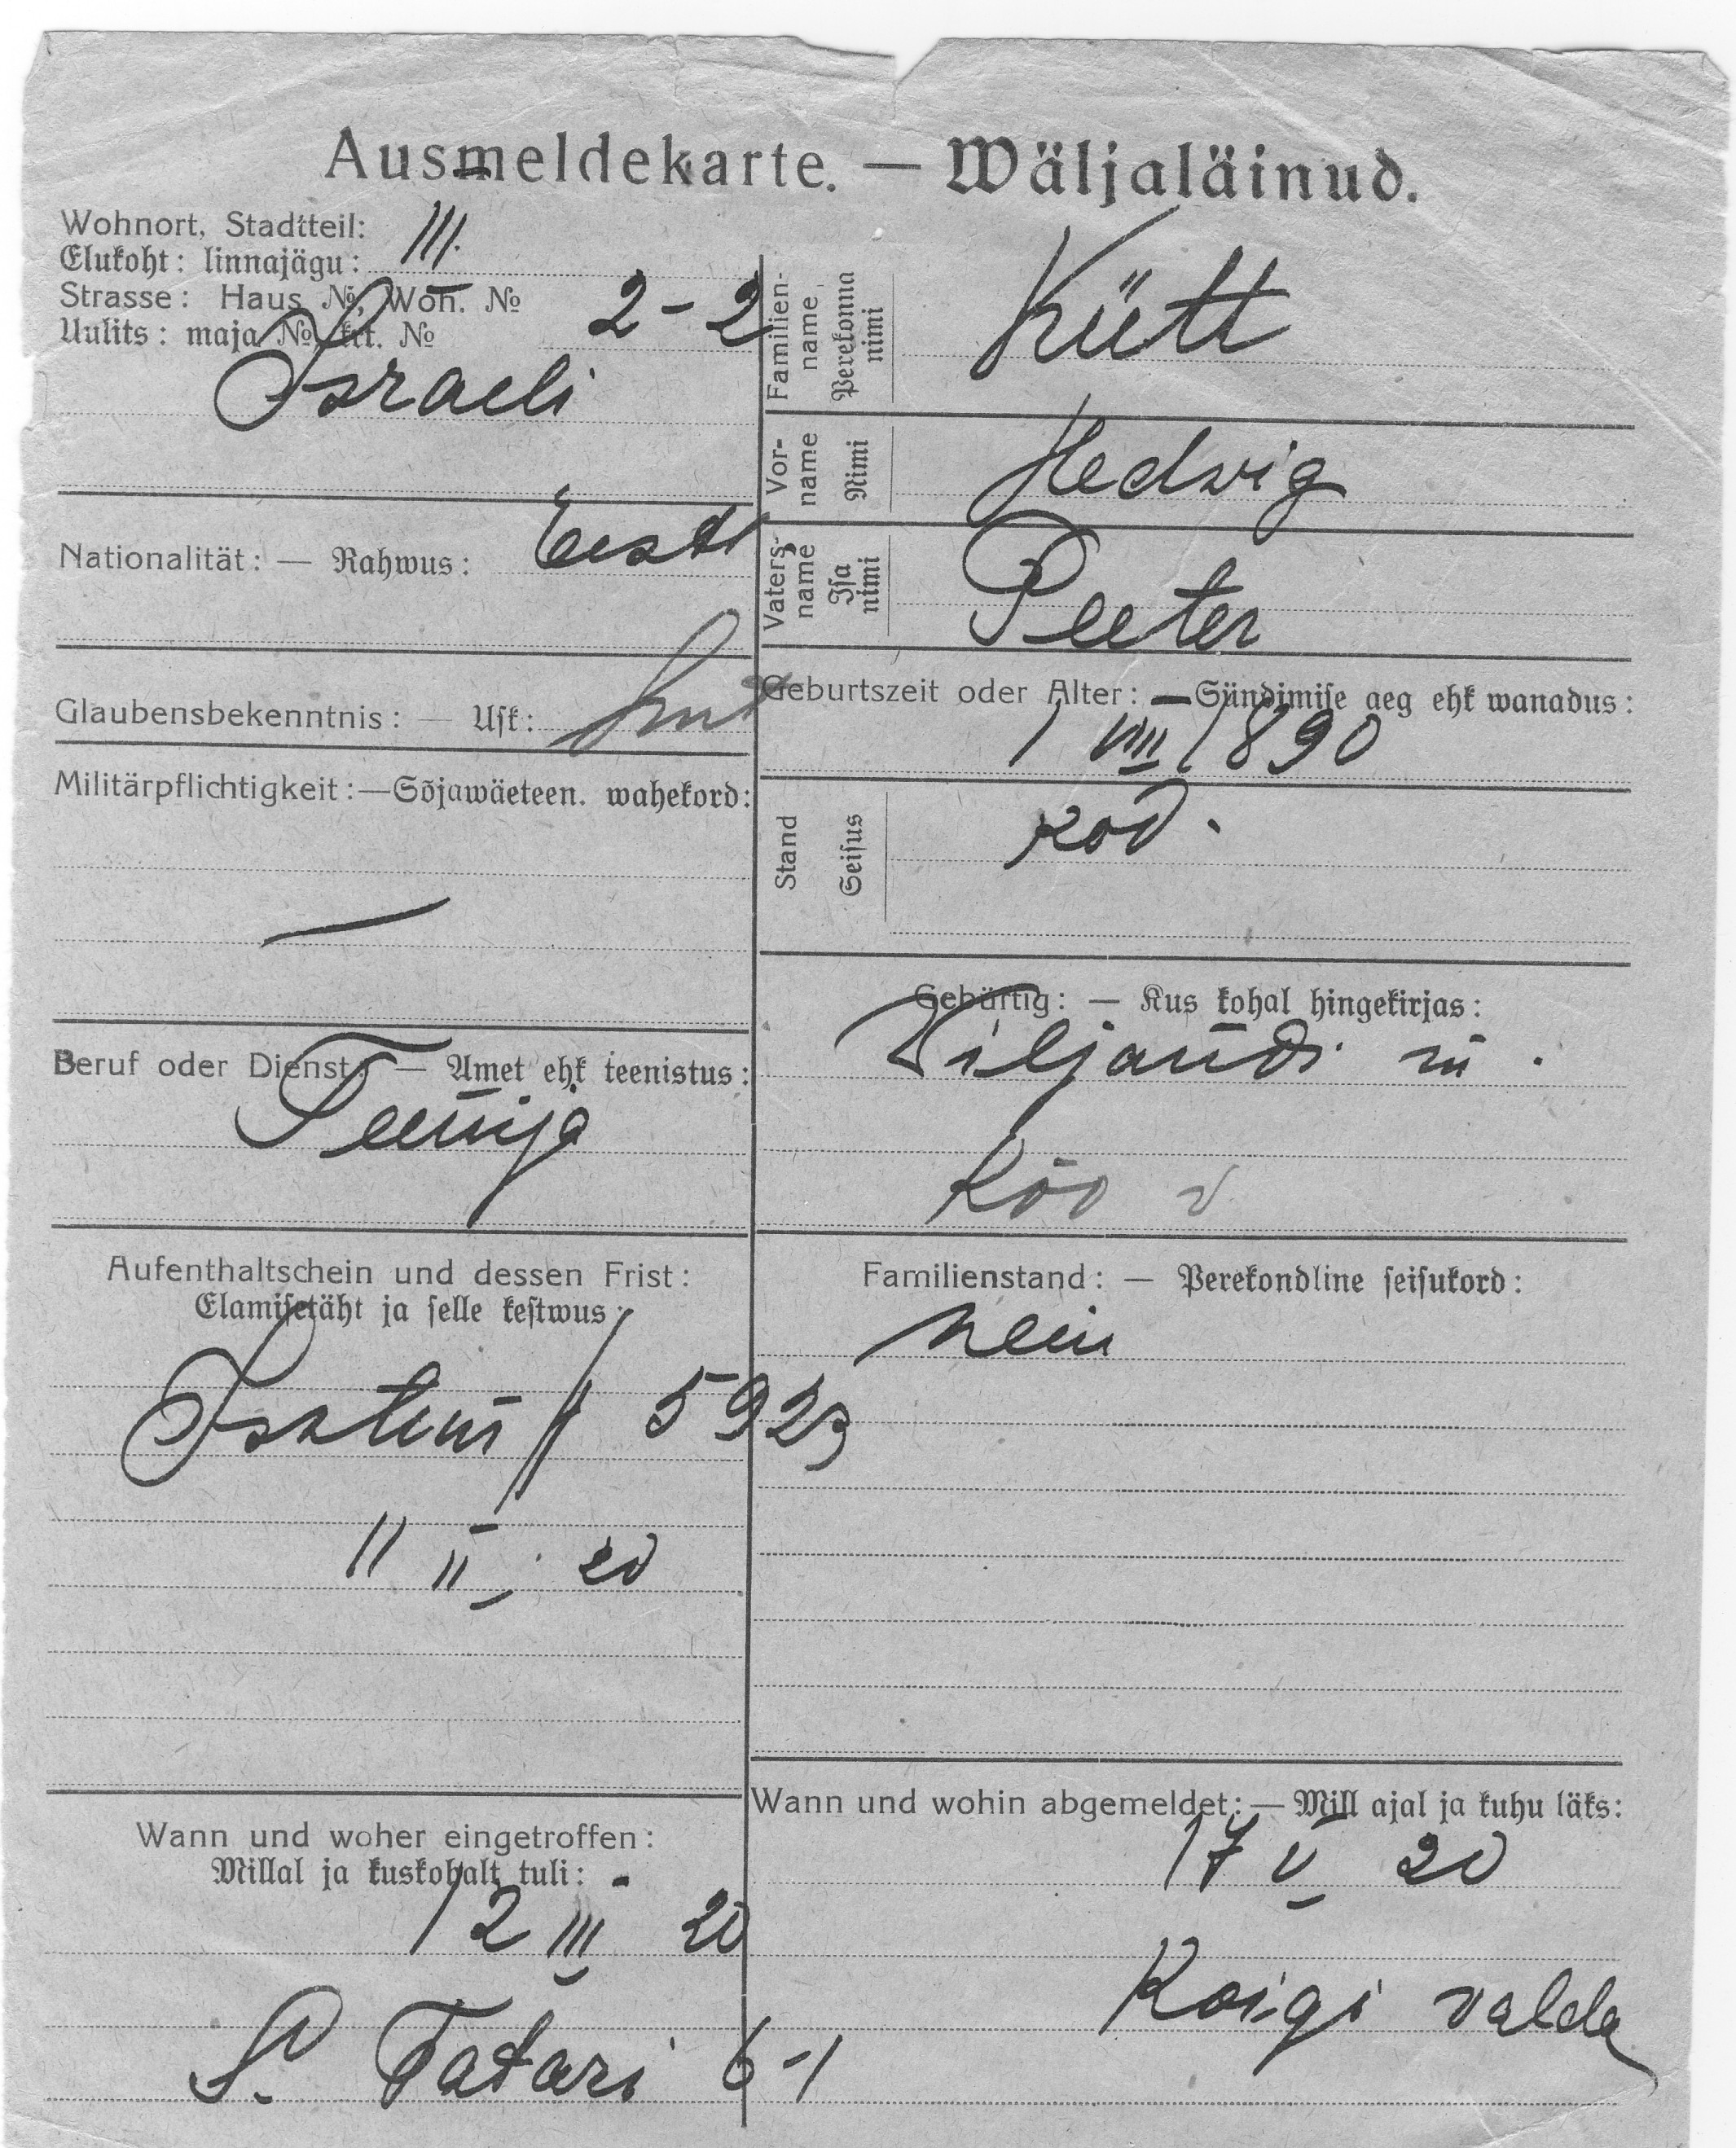 Ausmeldekarte. — Wäljaläinud.
Wohnort, Stadtteil:
Elukoht: linnajägu: III.
Strasse: Haus №, Woh. №
Uulits: maja № krt. № 2-2
Israeli
Nationalität: — Rahwus: Eesti
Glaubensbekenntnis: — Usk: Lut
Militärpflichtigkeit:—Sõjawäeteen. wahekord:
—
Beruf oder Dienst: — Amet ehk teenistus:
Teenija
Aufenthaltschein und dessen Frist:
Elamisetäht ja selle kestwus:
5923
11 II. 20
Wann und woher eingetroffen:
Millal ja kuskohalt tuli:
12 III 20
S. Tatari 6-1
Familien-name Perekonna nimi
Kütt
Vor-name Nimi
Hedwig
Vaters-name Isa nimi
Peeter
Geburtszeit oder Alter: — Sündimise aeg ehk wanadus:
1 VIII 1890
Stand Seisus
kod.
Gebürtig: — Kus kohal hingekirjas:
Viljandi m.
Kõo v
Familienstand: — Perekondline seisukord:
Wann und wohin abgemeldet: — Mill ajal ja kuhu läks:
17 V 20
Koigi valda